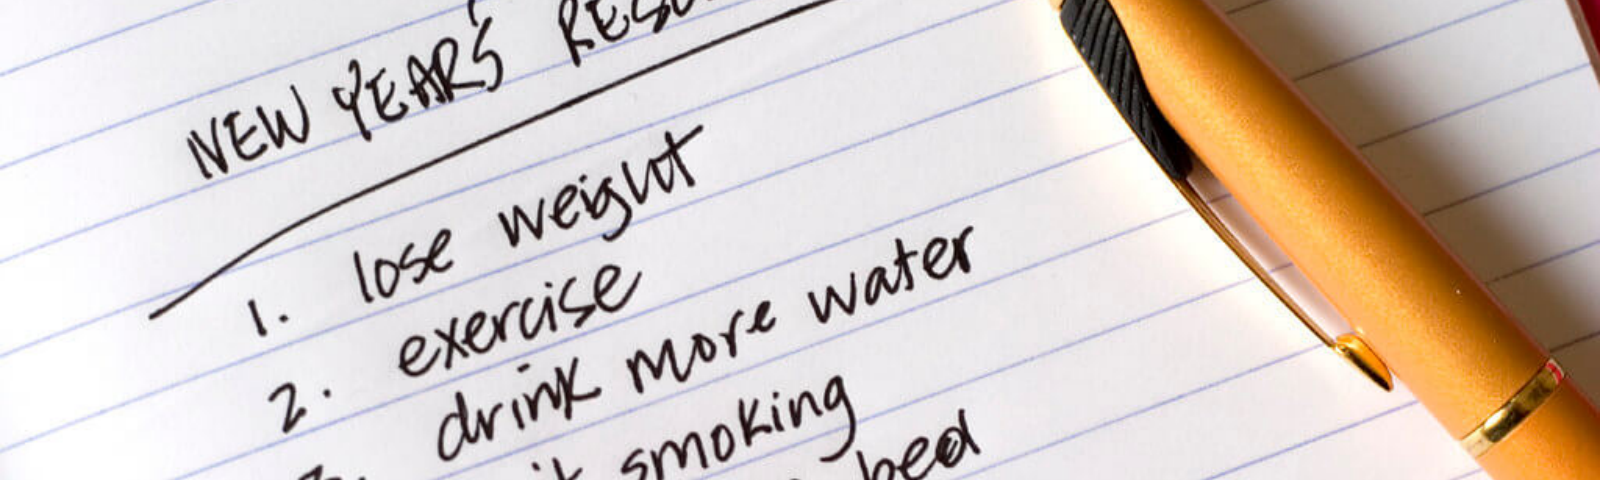 NEW YEAR'S
1. lose weight
2. exercise
3. drink more water
smoking
bed